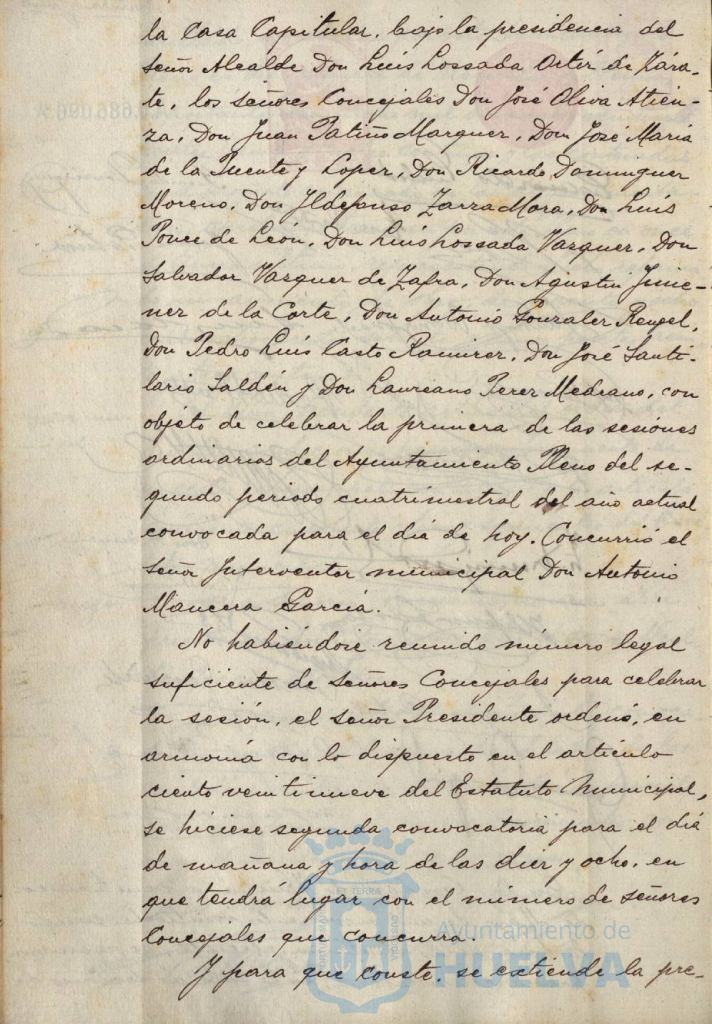 la Casa Capitular, bajo la presidencia del
señor Alcalde Don Luis Lossada Ortiz de Zára-
te, los señores Concejales Don José Oliva Atien-
za, Don Juan Patiño Marquez, Don José Maria
de la Puente y Lopez, Don Ricardo Dominguez
Moreno, Don Ildefonso Zarza Mora, Don Luis
Ponce de León, Don Luis Lossada Vazquez, Don
Salvador Vazquez de Zafra, Don Agustin Jime-
nez de la Corte, Don Antonio Gonzalez Rengel,
Don Pedro Luis Casto Ramirez, Don José Santi-
lario Saldén y Don Laureano Perez Medrano, con
objéto de celebrar la primera de las sesiones
ordinarias del Ayuntamiento Pleno del se-
gundo periodo cuatrimestral del año actual
convocada para el dia de hoy. Concurrió el
señor Interventor municipal Don Antonio
Mancera Garcia.
No habiéndose reunido número legal
suficiente de señores Concejales para celebrar
la sesión, el señor Presidente ordenó, en
armonia con lo dispuesto en el articulo
ciento veintinueve del Estatuto Municipal,
se hiciese segunda convocatoria para el dia
de mañana y hora de las diez y ocho, en
que tendrá lugar con el número de señores
Concejales que concurra.
Y para que conste, se extiende la pre-
Ayuntamiento de
HUELVA